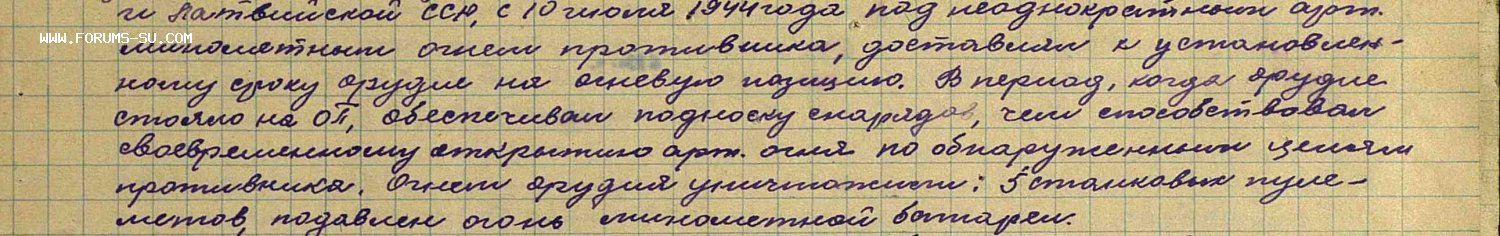 и Латвийской ССР, с 10 июля 1944 года под неоднократным арт.
WWW.FORUMS-SU.COM
минометным огнем противника, доставлял к установлен-
ному сроку орудие на огневую позицию. В период, когда орудие
стояло на ОП, обеспечивал подноску снарядов, чем способствовал
своевременному открытию арт. огня по обнаруженным целям
противника. Огнем орудия уничтожили: 5 станковых пуле-
метов, подавлен огонь минометной батареи.